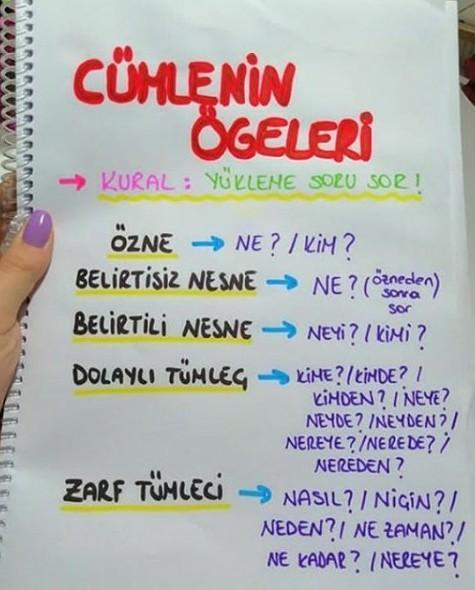 CÜMLENİN
ÖGELERİ
→ KURAL : YÜKLEME SORU SOR!
ÖZNE → NE ? / KİM ?
BELİRTİSİZ NESNE → NE ? (özneden sonra sor)
BELİRTİLİ NESNE → NEYİ ? / KİMİ ?
DOLAYLI TÜMLEÇ → KİME? / KİMDE? /
KİMDEN ? / NEYE?
NEYDE? / NEYDEN? /
NEREYE? / NEREDE? /
NEREDEN ?
ZARF TÜMLECİ → NASIL? / NİÇİN? /
NEDEN? / NE ZAMAN? /
NE KADAR? / NEREYE?